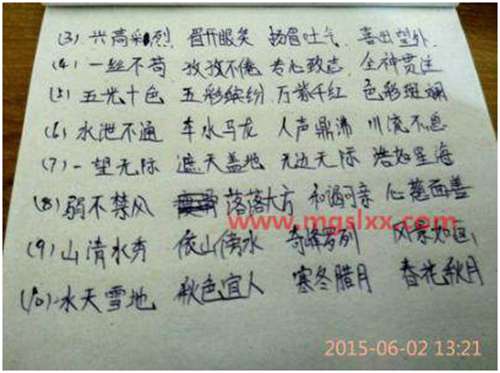 (3) 兴高彩烈 眉开眼笑 扬眉吐气 喜出望外
(4) 一丝不苟 孜孜不倦 专心致志 全神贯注
(5) 五光十色 五彩缤纷 万紫千红 色彩斑斓
(6) 水泄不通 车水马龙 人声鼎沸 川流不息
(7) 一望无际 遮天盖地 无边无际 浩如星海
(8) 弱不禁风 落落大方 和蔼可亲 心慈面善
www.mgslxx.com
(9) 山清水秀 依山傍水 奇峰罗列 风景如画
(10) 水天雪地 秋色宜人 寒冬腊月 春花秋月
2015-06-02 13:21